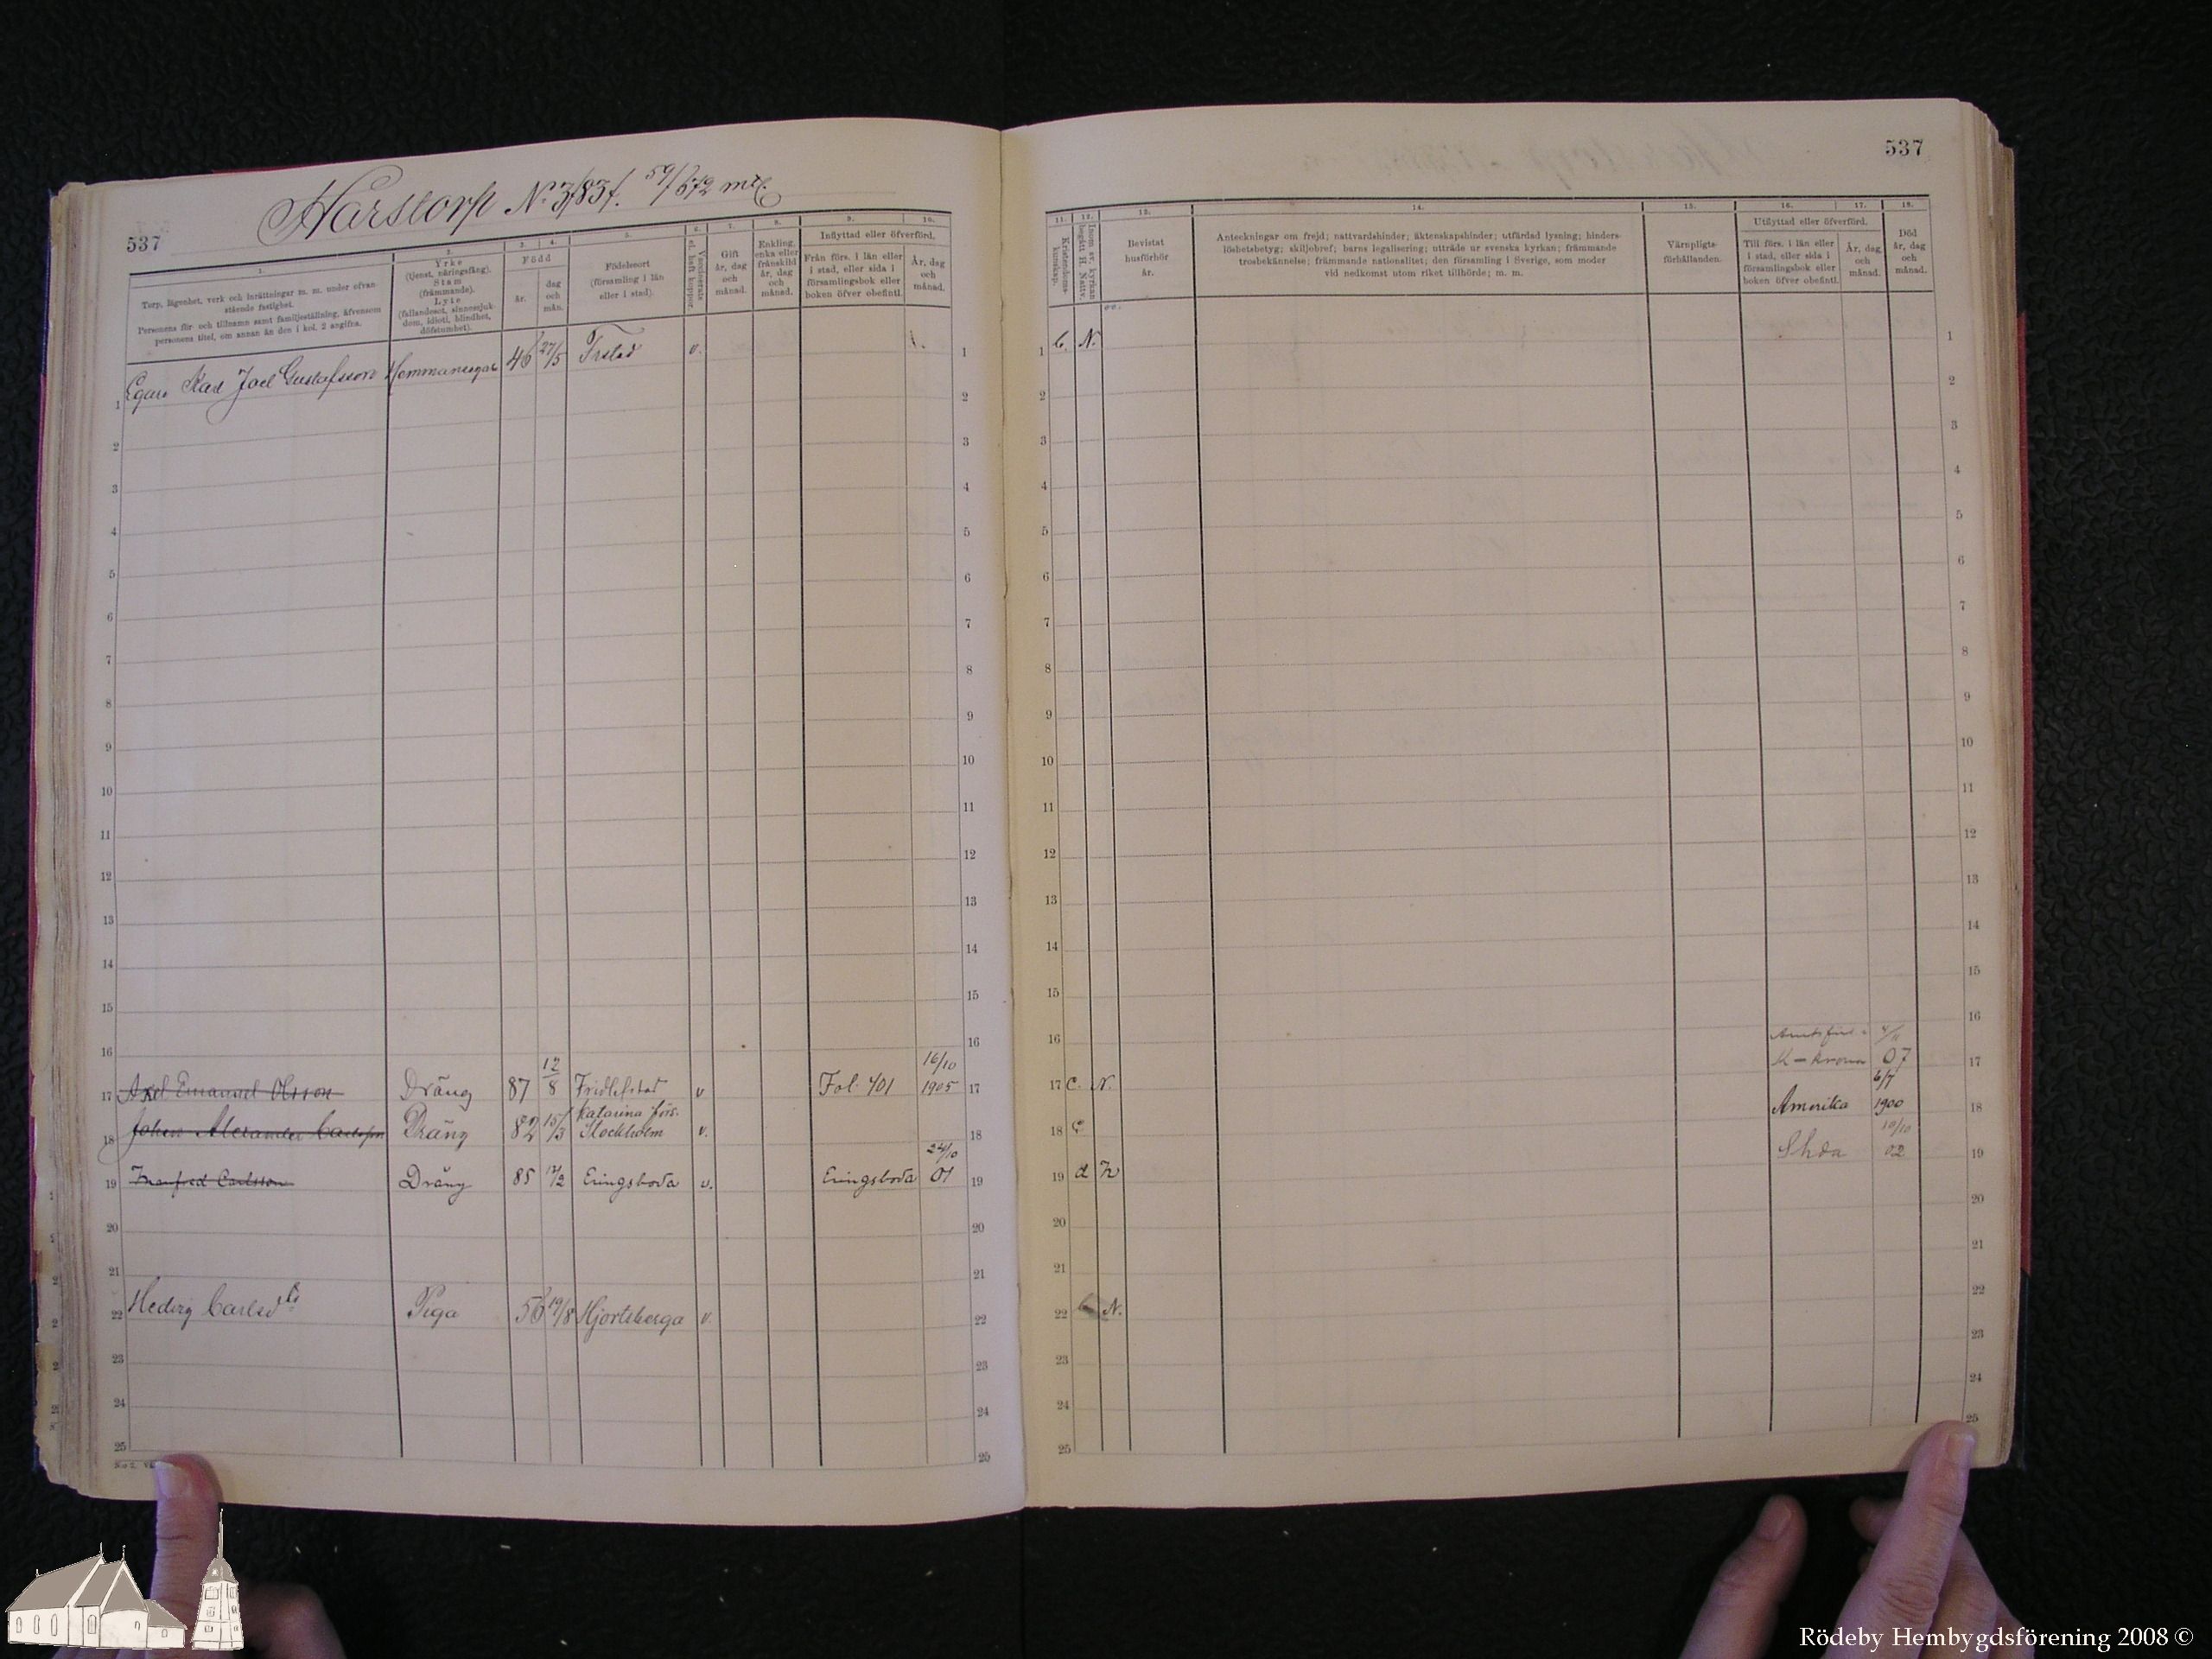 Harstorp No 3, 83 f. 59/672 mtl
537
1. 2. 3. 4. 5. 6. 7. 8. 9. 10.
Torp, lägenhet, verk och inrättningar m. m. under ofvan-
stående fastighet.
Personens för- och tillnamn samt familjeställning, äfvensom
personens titel, om annan än den i kol. 2 angifna.
Yrke
(tjenst, näringsfång).
Stam
(främmande).
Lyte
(fallandesot, sinnessjuk-
dom, idioti, blindhet,
döfstumhet).
Född
år.
dag
och
mån.
Födelseort
(församling i län
eller i stad).
Vaccinerats
el. haft koppor.
Gift
år, dag
och
månad.
Enkling,
enka eller
frånskild
år, dag
och
månad.
Inflyttad eller öfverförd.
Från förs. i län eller
i stad, eller sida i
församlingsbok eller
boken öfver obefintl.
År, dag
och
månad.
1 Egare Karl Joel Gustafsson Hemmansegare 46 27/5 Trstad v. 1
2 2
3 3
4 4
5 5
6 6
7 7
8 8
9 9
10 10
11 11
12 12
13 13
14 14
15 15
16 16
17 Axel Emanuel Olsson Dräng 87 12/8 Fridlefstad v Fol. 401 16/10 1905 17
18 Johan Alexander Carlsson Dräng 82 15/3 Katarina förs. Stockholm v. 18
19 Manfred Carlsson Dräng 85 17/2 Eringsboda v. Eringsboda 24/10 01 19
20 20
21 21
22 Hedvig Carlsd Piga 56 19/8 Hjortsberga v. 22
23 23
24 24
25 25
537
11. 12. 13. 14. 15. 16. 17. 18.
Kristendoms-
kunskap.
Inom sv. kyrkan
begått H. Nattv.
Bevistat
husförhör
år.
Anteckningar om frejd; nattvardshinder; äktenskapshinder; utfärdad lysning; hinders-
löshetsbetyg; skiljobref; barns legalisering; utträde ur svenska kyrkan; främmande
trosbekännelse; främmande nationalitet; den församling i Sverige, som moder
vid nedkomst utom riket tillhörde; m. m.
Värnpligts-
förhållanden.
Utflyttad eller öfverförd.
Till förs. i län eller
i stad, eller sida i
församlingsbok eller
boken öfver obefintl.
År, dag
och
månad.
Död
år, dag
och
månad.
1 C. N. 1
2 2
3 3
4 4
5 5
6 6
7 7
8 8
9 9
10 10
11 11
12 12
13 13
14 14
15 15
16 16
17 c. N. K-krona 4/11 07 17
18 c Amerika 6/7 1900 18
19 d N 10/10 02 19
20 20
21 21
22 N. 22
23 23
24 24
25 25
Rödeby Hembygdsförening 2008 ©